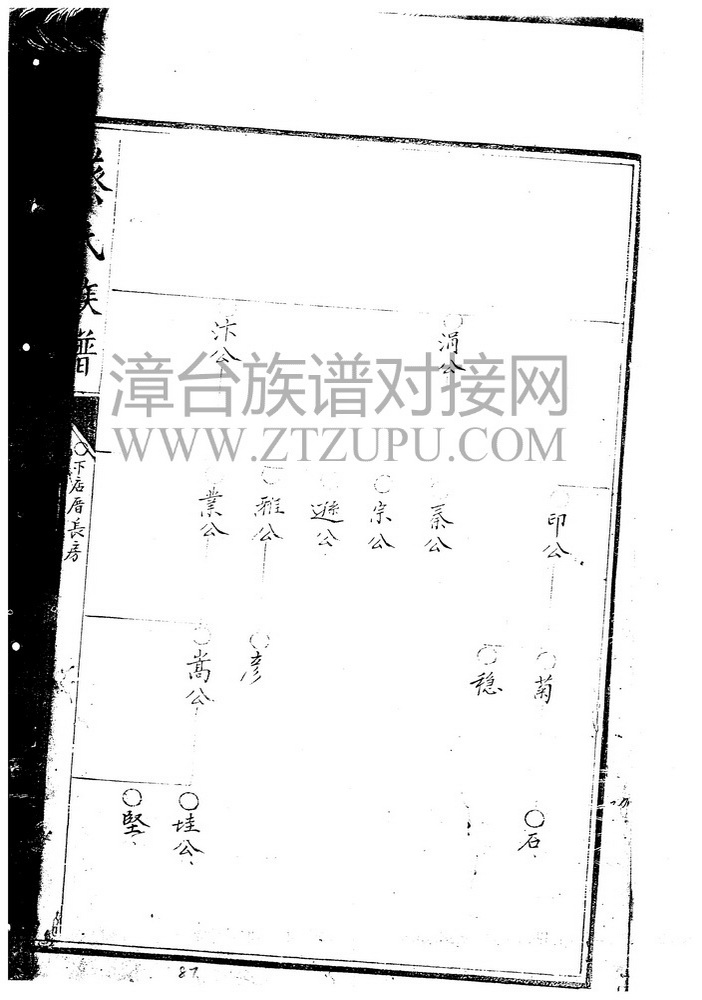 氏族譜
○下店厝長房
○涓公
○汴公
○印公
○秦公
○宗公
○遜公
○雅公
○業公
○菊
○穩
○彥
○嵩公
○石
○珪公
○堅
漳台族谱对接网
WWW.ZTZUPU.COM
87